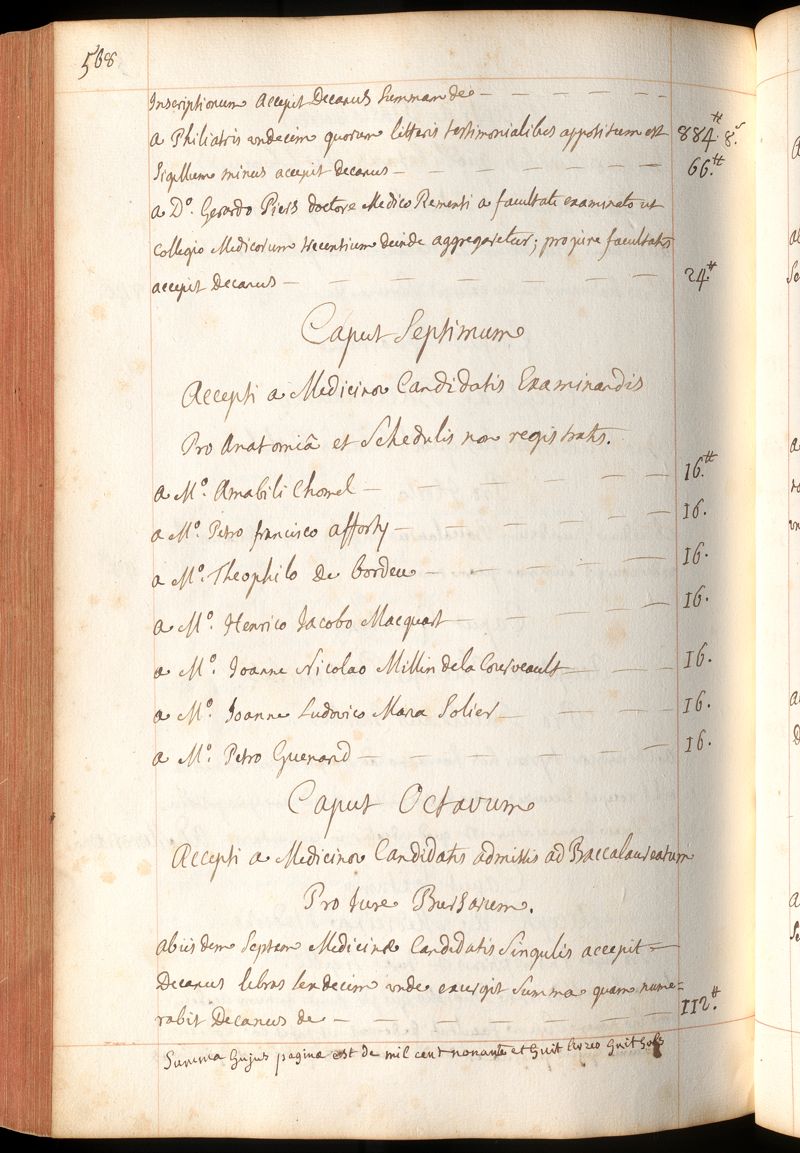 568
Inscriptionum accepit Decanus Summam de
a Philiatris undecim quorum litteris testimonialibus appositum est 884.tt 8.s
Sigillum minus accepit Decanus 66.tt
a D.o Gerardo Piers doctore Medico Remensi a facultate examinato ut
Collegio Medicorum trecentium deinde aggregaretur; pro jure facultatis
accepit Decanus 24.tt
Caput Septimum
Accepti a Medicinæ Candidatis Examinandis
Pro Anatomiâ et Schedulis non registratis.
a M.o Amabili Chomel 16.tt
a M.o Petro francisco afforty 16.
a M.o Theophilo de bordeu 16.
a M.o Henrico Jacobo Macquart 16.
a M.o Joanne Nicolao Millin de la Courveault 16.
a M.o Joanne Ludovico Maria Solier 16.
a M.o Petro Guenard 16.
Caput Octavum
Accepti a Medicinæ Candidatis admissis ad Baccalaureatum
Pro Jure Bursarum.
ab iisdem Septem Medicinæ Candidatis Singulis accepit
Decanus libras sexdecim unde exurgit Summa quam nume=
rabit Decanus de 112.tt
Summa hujus paginæ est de mil cent nonante et huit huit sols